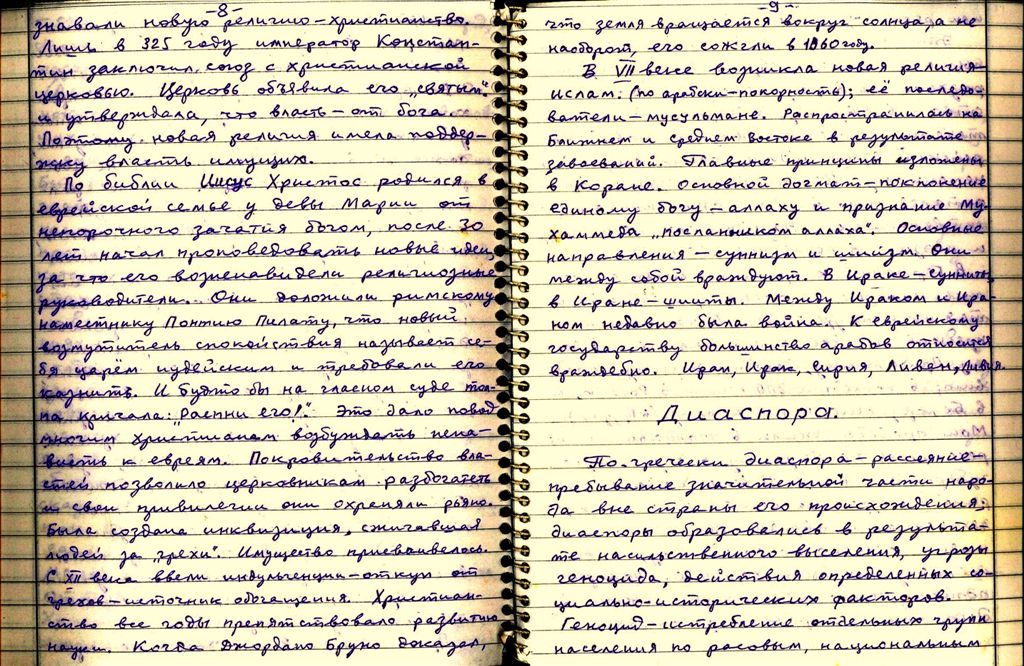 -8-
знавали новую религию – христианство.
Лишь в 325 году император Констан-
тин заключил союз с христианской
церковью. Церковь объявила его „святым"
и утверждала, что власть – от бога.
Поэтому новая религия имела поддер-
жку власть имущих.
По библии Иисус Христос родился в
еврейской семье у девы Марии от
непорочного зачатия богом, после 30
лет начал проповедовать новые идеи,
за что его возненавидели религиозные
руководители. Они доложили римскому
наместнику Понтию Пилату, что новый
возмутитель спокойствия называет се-
бя царём иудейским и требовали его
казнить. И будто бы на гласном суде тол-
па кричала: „Распни его!" Это дало повод
многим христианам возбуждать нена-
висть к евреям. Покровительство вла-
стей позволило церковникам разбогатеть
и свои привилегии они охраняли рьяно.
Была создана инквизиция, сжигавшая
людей за „грехи". Имущество присваивалось.
С XII века ввели индульгенции – откуп от
грехов – источник обогащения. Христиан-
ство все годы препятствовало развитию
науки. Когда Джордано Бруно доказал,
-9-
что земля вращается вокруг солнца, а не
наоборот, его сожгли в 1660 году.
В VII веке возникла новая религия –
ислам. (по арабски – покорность); её последо-
ватели – мусульмане. Распространилась на
Ближнем и Среднем востоке в результате
завоеваний. Главные принципы изложены
в Коране. Основной догмат – поклонение
единому богу – аллаху и признание Му-
хаммеда „посланником аллаха". Основные
направления – суннизм и шиизм. Они
между собой враждуют. В Ираке – сунниты,
в Иране – шииты. Между Ираком и Ира-
ном недавно была война. К еврейскому
государству большинство арабов относится
враждебно. Иран, Ирак, Сирия, Ливан, Ливия.
Диаспора.
По-гречески диаспора – рассеяние –
пребывание значительной части наро-
да вне страны его происхождения;
диаспоры образовались в результа-
те насильственного выселения, угрозы
геноцида, действия определенных со-
циально-исторических факторов.
Геноцид – истребление отдельных групп
населения по расовым, национальным